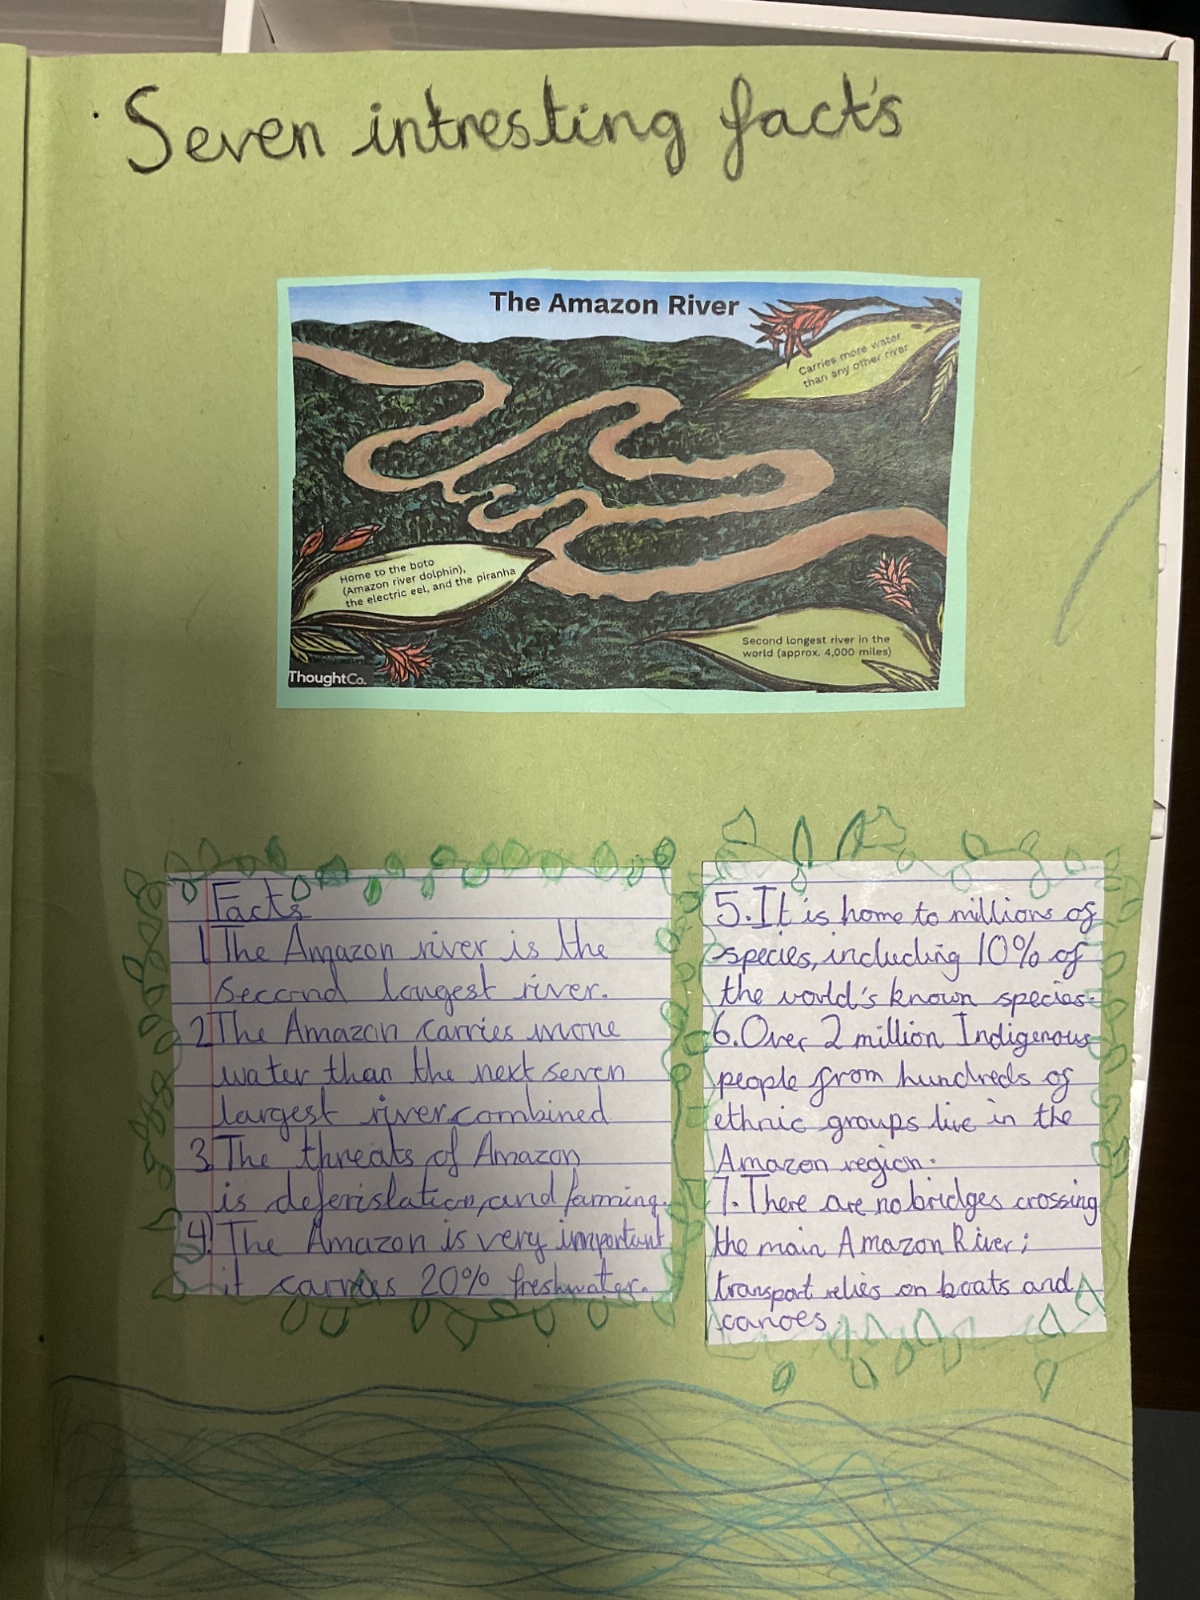 Seven intresting fact's
The Amazon River
Carries more water
than any other river
Home to the boto
(Amazon river dolphin),
the electric eel, and the piranha
Second longest river in the
world (approx. 4,000 miles)
ThoughtCo.
Facts
1 The Amazon river is the
second longest river.
2 The Amazon carries more
water than the next seven
largest river combined
3 The threats of Amazon
is deferislation, and farming.
4. The Amazon is very important
it carries 20% freshwater.
5. It is home to millions of
species, including 10% of
the world's known species.
6. Over 2 million Indigenous
people from hundreds of
ethnic groups live in the
Amazon region.
7. There are no bridges crossing
the main Amazon River;
transport relies on boats and
canoes.